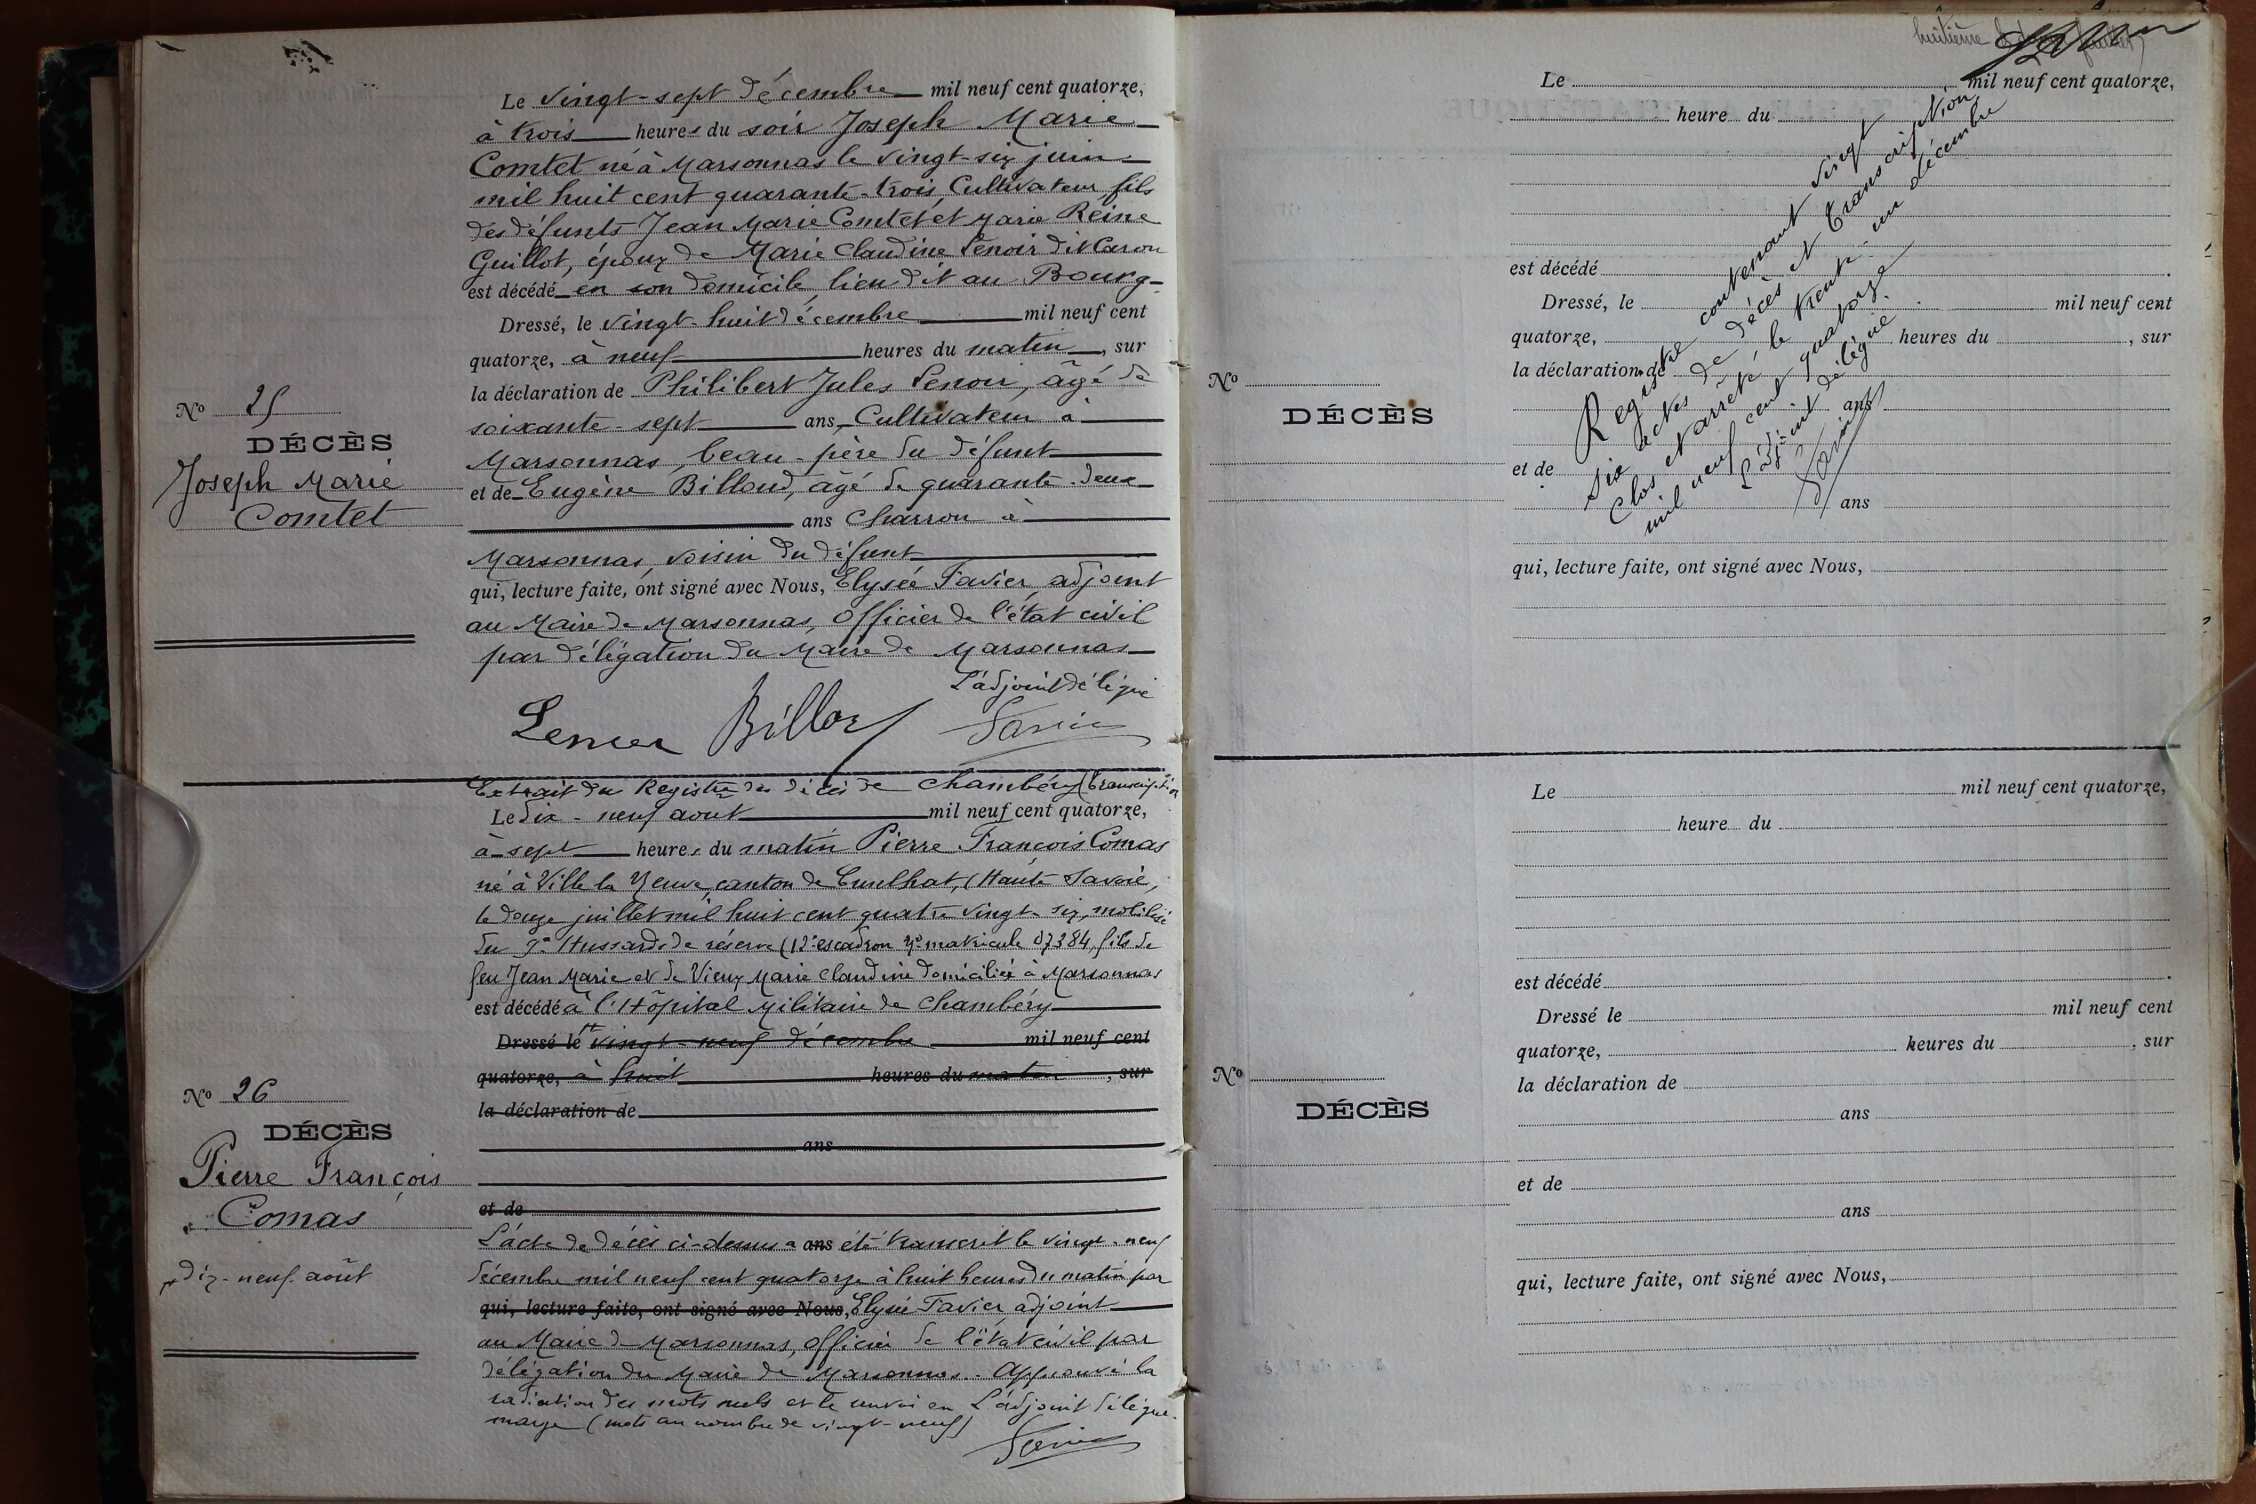 Le vingt-sept décembre mil neuf cent quatorze,
à trois heures du soir Joseph Marie
Comtet né à Marsonnas le vingt-six juin
mil huit cent quarante-trois, Cultivateur, fils
des défunts Jean Marie Comtet et Marie Reine
Guillot, époux de Marie Claudine Lenoir dit Caron
est décédé en son domicile, lieu dit au Bourg
Dressé, le vingt-huit décembre mil neuf cent
quatorze, à neuf heures du matin, sur
la déclaration de Philibert Jules Lenoir, âgé de
soixante-sept ans, Cultivateur à
Marsonnas, beau-père du défunt
et de Eugène Billoud, âgé de quarante-deux
ans charron à
Marsonnas, voisin du défunt
qui, lecture faite, ont signé avec Nous, Elysée Favier, adjoint
au Maire de Marsonnas, Officier de l'état civil
par délégation du Maire de Marsonnas
L'adjoint délégué
Nº 25
DÉCÈS
Joseph Marie
Comtet
Extrait du Registre des décès de Chambéry (Transcription
Le dix-neuf août mil neuf cent quatorze,
à sept heures du matin Pierre François Comas
né à Ville la canton de (Haute Savoie,
le douze juillet mil huit cent quatre vingt-six, mobilisé
du Hussards de réserve (12e escadron nº matricule 07384, fils de
feu Jean Marie et de Vieux Marie Claudine domiciliée à Marsonnas
est décédé à l'Hôpital Militaire de Chambéry
Dressé le vingt-neuf décembre mil neuf cent
quatorze, à huit heures du matin, sur
la déclaration de
ans
et de
L'acte de décès ci-dessus a ans été transcrit le vingt-neuf
décembre mil neuf cent quatorze à huit heures du matin par
qui, lecture faite, ont signé avec Nous, Elysée Favier, adjoint
au Maire de Marsonnas, Officier de l'état civil par
délégation du Maire de Marsonnas. Approuvé la
radiation des mots nuls et le renvoi en L'adjoint délégué.
marge (mots au nombre de vingt-neuf)
Favier
Nº 26
DÉCÈS
Pierre François
Comas
dix-neuf août
huitième
Le mil neuf cent quatorze,
heure du
est décédé
Dressé, le mil neuf cent
quatorze, heures du , sur
la déclaration de
ans
et de
ans
qui, lecture faite, ont signé avec Nous,
Nº
DÉCÈS
Registre contenant vingt
six actes de décès et transcription
Clos et arrêté, le trente-un décembre
mil neuf cent quatorze.
L'adjoint délégué
Favier
Le mil neuf cent quatorze,
heure du
est décédé
Dressé le mil neuf cent
quatorze, heures du , sur
la déclaration de
ans
et de
ans
qui, lecture faite, ont signé avec Nous,
Nº
DÉCÈS